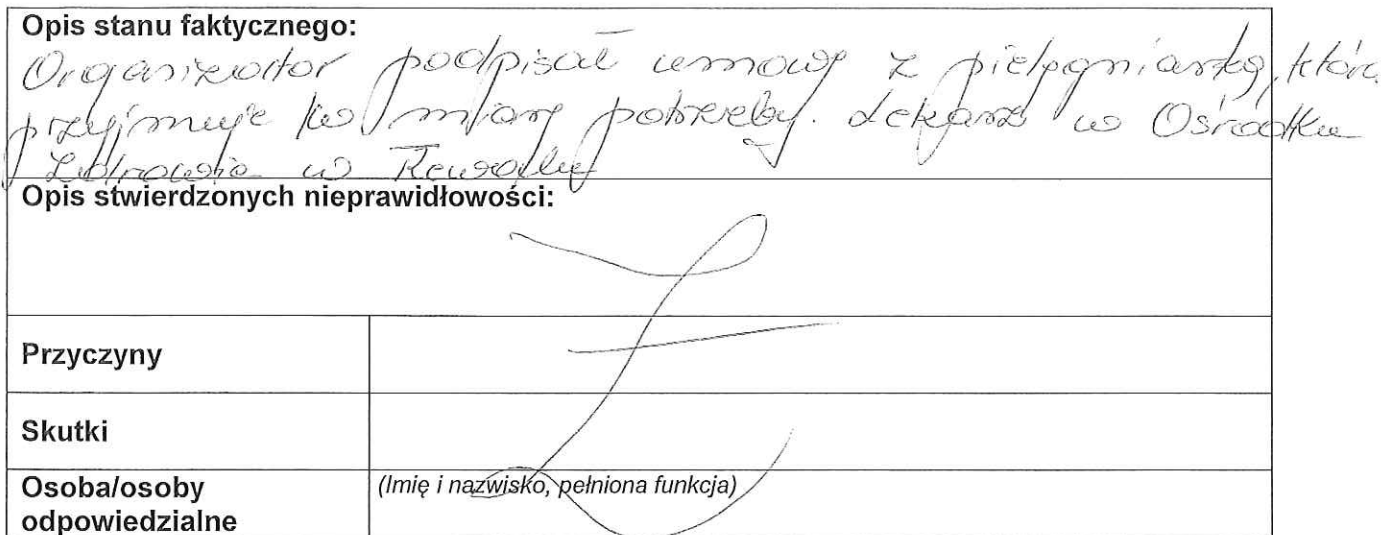 Opis stanu faktycznego:
Organizator podpisał umowę z pielęgniarką, która
przyjmuje w miarę potrzeby. Lekarz w Ośrodku
Zdrowia w
Opis stwierdzonych nieprawidłowości:
Przyczyny
Skutki
Osoba/osoby (Imię i nazwisko, pełniona funkcja)
odpowiedzialne